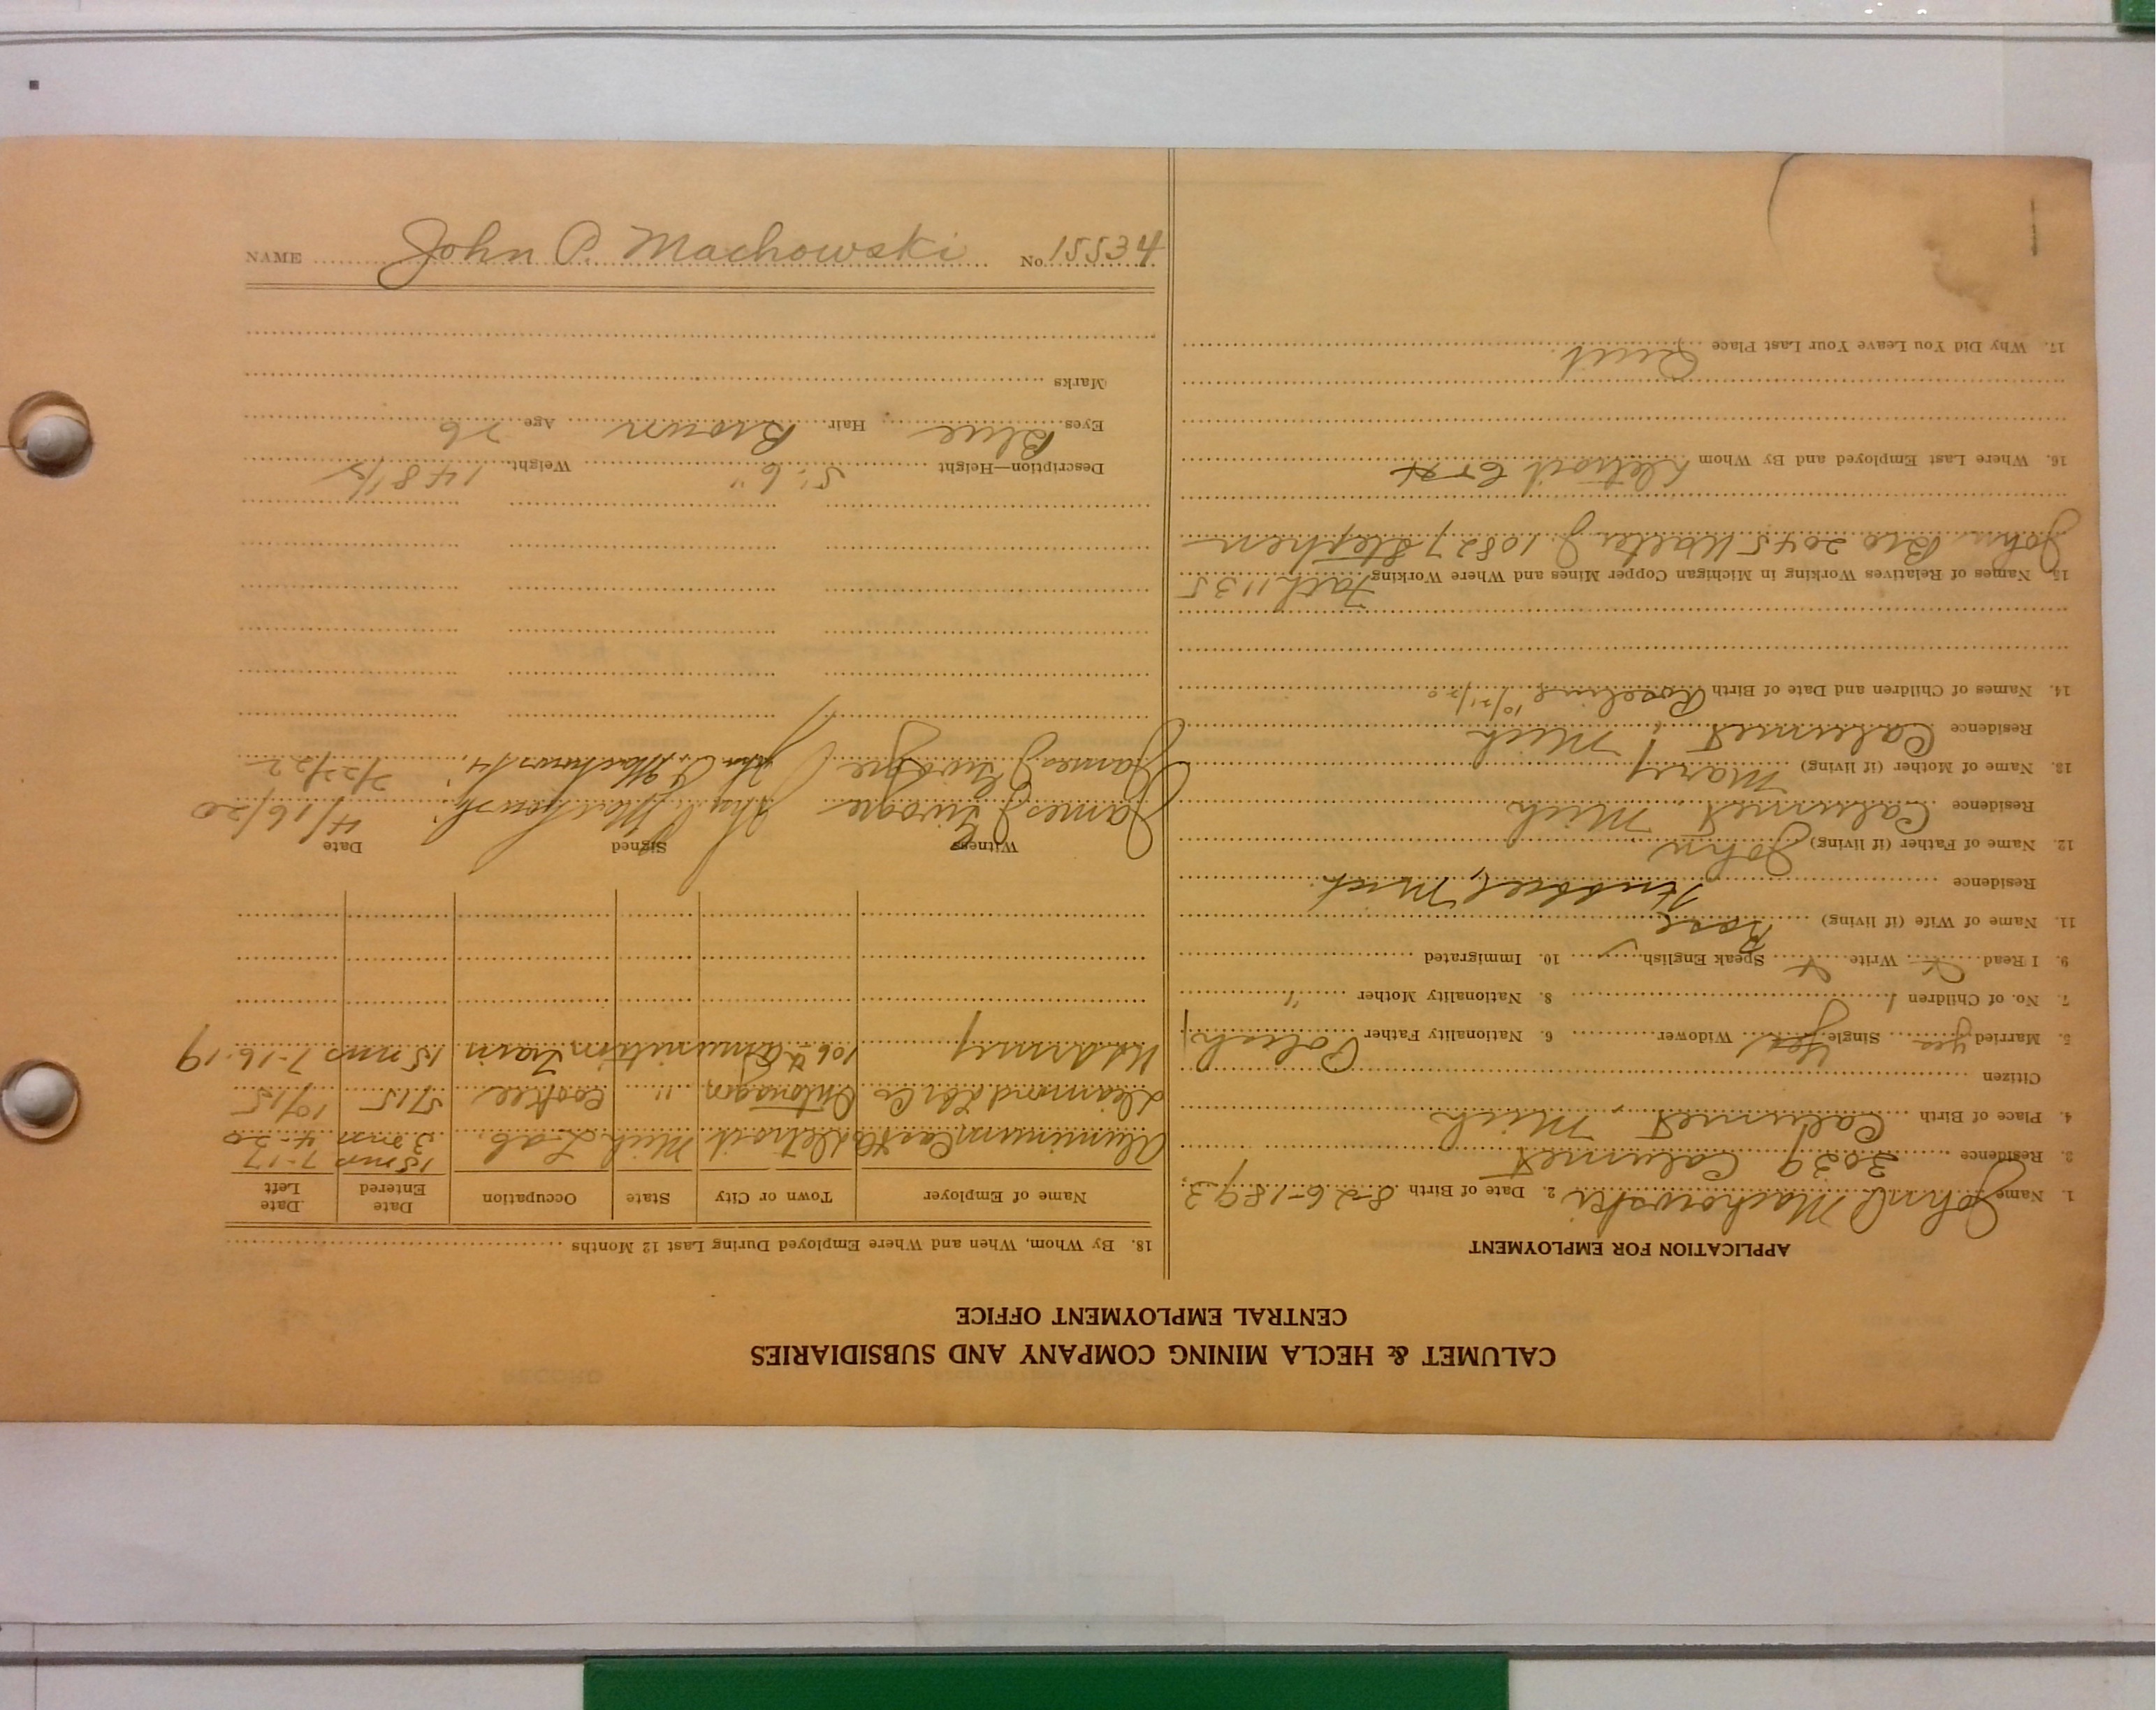 CALUMET & HECLA MINING COMPANY AND SUBSIDIARIES
CENTRAL EMPLOYMENT OFFICE
APPLICATION FOR EMPLOYMENT
1. Name John P. Machowski 2. Date of Birth 8-26-1893
3. Residence 3039 Calumet
4. Place of Birth Calumet, Mich
Citizen
5. Married yes Single Yes Widower 6. Nationality Father Polish
7. No. of Children 1 8. Nationality Mother "
9. I Read Write Speak English 10. Immigrated
11. Name of Wife (if living) Rose
Residence Hubbell, Mich.
12. Name of Father (if living) John
Residence Calumet, Mich
13. Name of Mother (if living) Mary
Residence Calumet, Mich
14. Names of Children and Date of Birth Roseline 10/21/20
15. Names of Relatives Working in Michigan Copper Mines and Where Working Fath 1135
John Bro 2045 Walter J. 10827 Stephen
16. Where Last Employed and By Whom Detroit
17. Why Did You Leave Your Last Place Quit.
18. By Whom, When and Where Employed During Last 12 Months
Name of Employer Town or City State Occupation Date Entered Date Left
15 mos 7-17
Aluminum Cast Co Detroit Mich Lab. 3 mos 4-20
Diamond Lbr Co Ontonagon " Cookee 5/15 10/15
U S Army 106th Amunition Train 15 mos 7-16-19
Witness Signed Date
James J. John P. Machowski 4/16/20
James J. John P. Machowski 2/22/22
Description—Height 5' 6" Weight 148 1/2
Eyes Blue Hair Brown Age 26
Marks
NAME John P. Machowski No 15534